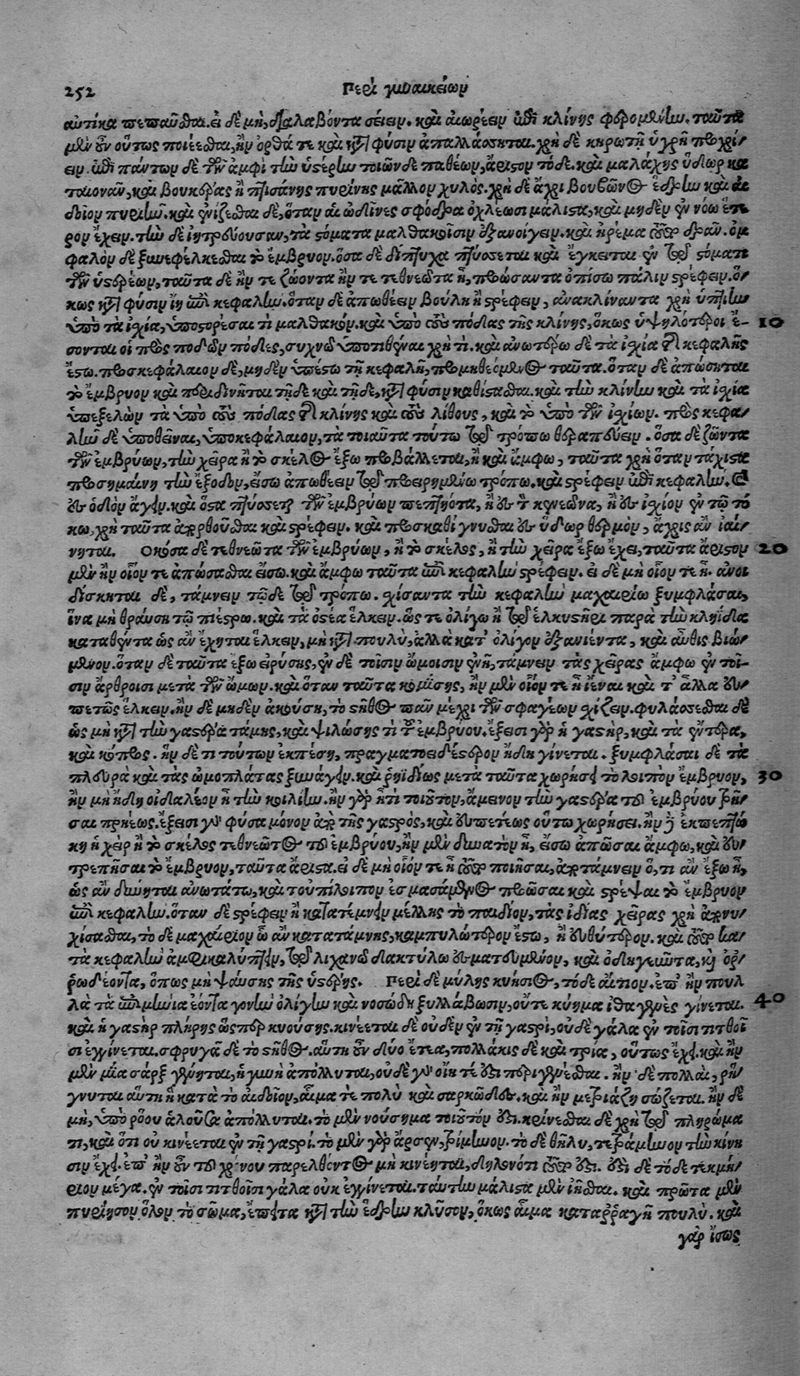 252 Περὶ γυναικείων
αὐτίκα πεπαῦσθαι. εἰ δὲ μὴ, διαλαβόντα σείειν. καὶ αἰωρέειν ἐπὶ κλίνης φερομένην. ταῦτα
μὲν οὖν οὕτως ποιέεσθαι, ἢν ὀρθά τε καὶ κατὰ φύσιν ἀπαλλάσσηται. χρὴ δὲ κηρωτῇ ὑγρῇ προχρί
ειν. ἐπὶ πάντων δὲ τῶν ἀμφὶ τὴν ὑστέρην τοιῶνδε παθέων, ἄριστον τόδε. καὶ μαλάχης ὕδωρ κα
ταιονᾶν, καὶ βουκέρας ἢ πτισάνης πυρίνης μᾶλλον χυλός. χρὴ δὲ ἄχρι βουβῶνος ἕδρην καὶ αἰ
δοῖον πυριῆν. καὶ ἐνίζεσθαι δὲ, ὅταν αἱ ὠδῖνες σφόδρα ὀχλέωσι μάλιστα, καὶ μηδὲν ἐν νόῳ ἕτε
ρον ἔχειν. τὴν δὲ ἰητρεύουσαν, τὰ στόματα μαλθακοῖσιν ἐξανοίγειν. καὶ ἠρέμα τοῦτο δρᾶν. ὀμ
φαλὸν δὲ ξυνεφέλκεσθαι τὸ ἔμβρυον. ὅσα δὲ δίπτυχα πτύσσεται καὶ ἔγκειται ἐν τῷ στόματι
τῶν ὑστερέων, ταῦτα δὲ ἤν τε ζώοντα ἤν τε τεθνεῶτα ᾖ, πρώσαντα ὀπίσω πάλιν στρέφειν. ὅ
κως κατὰ φύσιν ἴῃ ἐπὶ κεφαλήν. ὅταν δὲ ἀπωθέειν βούλῃ ἢ στρέφειν, ἀνακλίναντα χρὴ ὑπτίην
ὑπὸ τὰ ἰσχία, ὑποστορέσαι τι μαλθακόν. καὶ ὑπὸ τοὺς πόδας τῆς κλίνης, ὅκως ὑψηλότεροι ἔ- 10
σονται οἱ πρὸς ποδῶν πόδες, συχνὸν ὑποτιθέναι χρή τι. καὶ ἀνωτέρω δὲ τὰ ἰσχία τῆς κεφαλῆς
ἔστω. προσκεφάλαιον δὲ, μηδὲν ὑπέστω τῇ κεφαλῇ, προμηθεόμενος ταῦτα. ὅταν δὲ ἀπώσηται
τὸ ἔμβρυον καὶ περιδινῆται τῇδε καὶ τῇδε, κατὰ φύσιν καθίστασθαι. καὶ τὴν κλίνην καὶ τὰ ἰσχία
ὑπεξελὼν τὰ ὑπὸ τοὺς πόδας τῆς κλίνης καὶ τοὺς λίθους, καὶ τὸ ὑπὸ τῶν ἰσχίων. πρὸς κεφα
λὴν δὲ ὑποθεῖναι, ὑποκεφάλαιον, τὰ τοιαῦτα τούτῳ τῷ τρόπῳ θεραπεύειν. ὅσα δὲ ζῶντα
τῶν ἐμβρύων, τὴν χεῖρα ἢ τὸ σκέλος ἔξω προβάλλεται, ἢ καὶ ἄμφω, ταῦτα χρὴ ὅταν τάχιστα
προσημαίνῃ τὴν ἔξοδον, εἴσω ἀπωθέειν τῷ προειρημένῳ τρόπῳ. καὶ στρέφειν ἐπὶ κεφαλήν. καὶ
εἰς ὁδὸν ἄγειν. καὶ ὅσα πτύσσεται τῶν ἐμβρύων πεπτηότα, ἢ εἰς τὸν κενεῶνα, ἢ εἰς ἰσχίον ἐν τῷ τό
κῳ, χρὴ ταῦτα ἀπορθοῦσθαι καὶ στρέφειν. καὶ προσκαθίγνυσθαι εἰς ὕδωρ θερμὸν, ἄχρις ἂν ἰαί-
νηται. Ὁκόσα δὲ τεθνεῶτα τῶν ἐμβρύων, ἢ τὸ σκέλος, ἢ τὴν χεῖρα ἔξω ἔχει, ταῦτα ἄριστον 20
μὲν ἢν οἷόν τε ἀπώσασθαι εἴσω. καὶ ἄμφω ταῦτα ἐπὶ κεφαλὴν στρέφειν. εἰ δὲ μὴ οἷόν τε ᾖ. ἀνοι
δίσκηται δὲ, τάμνειν τῷδε τῷ τρόπῳ. σχίσαντα τὴν κεφαλὴν μαχαιρίῳ ξυμφλάσαι,
ἵνα μὴ θραύσῃ τῷ πιέστρῳ. καὶ τὰ ὀστέα ἕλκειν. ὥς τε ὀλίγῳ ἢ τῷ ἑλκυστῆρι παρὰ τὴν κληΐδα
καταθέντα ὡς ἂν ἔχηται ἕλκειν, μὴ κατὰ πουλὺ, ἀλλὰ κατ' ὀλίγον ἐξανιέντα, καὶ αὖθις βιώ-
μενον. ὅταν δὲ ταῦτα ἔξω εἰρύσῃς, ἐν δὲ τοῖσιν ὤμοισιν ἐνῇ, τάμνειν τὰς χεῖρας ἄμφω ἐν τοῖ-
σιν ἄρθροισι μετὰ τῶν ὤμων. καὶ ὅταν ταῦτα κομίσῃς, ἢν μὲν οἷόν τε ᾖ ἰέναι καὶ τ' ἄλλα εὐ-
πετῶς ἕλκειν. ἢν δὲ μηδὲν ἀκούσῃ, τὸ στῆθος πᾶν μέχρι τῶν σφαγέων σχίζειν. φυλάσσεσθαι δὲ
ὡς μὴ κατὰ τὴν γαστέρα τάμῃς, καὶ ψιλώσῃς τι τοῦ ἐμβρύου. ἔξεισι γὰρ ἡ γαστὴρ, καὶ τὰ ἔντερα,
καὶ κόπρος. ἢν δέ τι τούτων ἐκπέσῃ, πραγματοειδέστερον ἤδη γίνεται. ξυμφλάσαι δὲ τὰ
πλευρὰ καὶ τὰς ὠμοπλάτας ξυνάγειν. καὶ ῥηϊδίως μετὰ ταῦτα χωρήσει τὸ λοιπὸν ἔμβρυον, 30
ἢν μὴ ἤδη οἰδαλέον ᾖ τὴν κοιλίην. ἢν γὰρ ᾖ τι τοιοῦτον, ἄμεινον τὴν γαστέρα τοῦ ἐμβρύου τρῆ-
σαι πρηέως. ἔξεισι γὰρ φῦσα μόνον ἀπὸ τῆς γαστρὸς, καὶ εὐπετέως οὕτω χωρήσει. ἢν δὲ ἐκπεπτώ
κῃ ἡ χεὶρ ἢ τὸ σκέλος τεθνεῶτος τοῦ ἐμβρύου, ἢν μὲν δυνατὸν ᾖ, εἴσω ἀπῶσαι ἄμφω, καὶ εὐ-
τρεπῆσαι τὸ ἔμβρυον, ταῦτα ἄριστα. εἰ δὲ μὴ οἷόν τε ᾖ τοῦτο ποιῆσαι, ἀποτάμνειν ὅ, τι ἂν ἔξω ᾖ,
ὡς ἂν δύνηται ἀνωτάτω, καὶ τοὐπίλοιπον ἐσμασάμενος πρῶσαι καὶ στρέψαι τὸ ἔμβρυον
ἐπὶ κεφαλήν. ὅταν δὲ στρέφειν ἢ κατατέμνειν μέλλῃς τὸ παιδίον, τὰς ἰδίας χεῖρας χρὴ ἀπονυ
χίσασθαι, τὸ δὲ μαχαίριον ᾧ ἂν κατατάμνῃς, καμπυλώτερον ἔστω, ἢ εὐθύτερον. καὶ τούτου κα-
τὰ κεφαλὴν ἀμφικαλύπτειν, τῷ λιχανῷ δακτύλῳ εἰσματευόμενον, καὶ ὁδηγεῦντα, καὶ ὀρ-
ρωδέοντα, ὅπως μὴ ψαύσῃς τῆς ὑστέρης. Περὶ δὲ μύλης κυήσιος, τόδε αἴτιον. ἐπ' ἢν πουλ
λὰ τὰ ἐπιμήνια ἐόντα γονὴν ὀλίγην καὶ νοσώδη ξυλλάβωσιν, οὔτε κύημα ἰθαγενὲς γίνεται. 40
καὶ ἡ γαστὴρ πλήρης ὥσπερ κυούσης. κινέεται δὲ οὐδὲν ἐν τῇ γαστρὶ, οὐδὲ γάλα ἐν τοῖσι τιτθοῖ
σι ἐγγίνεται. σφριγᾷ δὲ τὸ στῆθος. αὕτη οὖν δύο ἔτεα, πολλάκις δὲ καὶ τρία, οὕτως ἔχει. καὶ ἢν
μὲν μία σὰρξ γένηται, ἡ γυνὴ ἀπόλλυται, οὐδὲ γὰρ οἵη τέ ἐστι περιγενέσθαι. ἢν δὲ πολλαὶ, ῥή
γνυται αὐτῇ ἢ κατὰ τὸ αἰδοῖον, αἷμα τε πολὺ καὶ σαρκῶδες. καὶ ἢν μετριάζῃ σώζεται. ἢν δὲ
μὴ, ὑπὸ ῥόου ἁλοῦσα ἀπόλλυται. τὸ μὲν νούσημα τοιοῦτόν ἐστι. κρίνεσθαι δὲ χρὴ τῷ πληρώμα
τι, καὶ ὅτι οὐ κινέεται ἐν τῇ γαστρί. τὸ μὲν γὰρ ἄρσεν, τρίμηνον. τὸ δὲ θῆλυ, τετράμηνον τὴν κίνη
σιν ἔχει. ἐπ' ἢν οὖν τοῦ χρόνου παρελθόντος μὴ κινέηται, δηλονότι τοῦτό ἐστι. ἔστι δὲ τόδε τεκμή
ριον μέγα. ἐν τοῖσι τιτθοῖσι γάλα οὐκ ἐγγίνεται. ταύτην μάλιστα μὲν ἰῆσθαι. καὶ πρῶτα μὲν
πυριῆσον ὅλον τὸ σῶμα, ἔπειτα κατὰ τὴν ἕδρην κλύσον, ὅκως αἷμα καταρραγῇ πουλύ. καὶ
γὰρ ἴσως